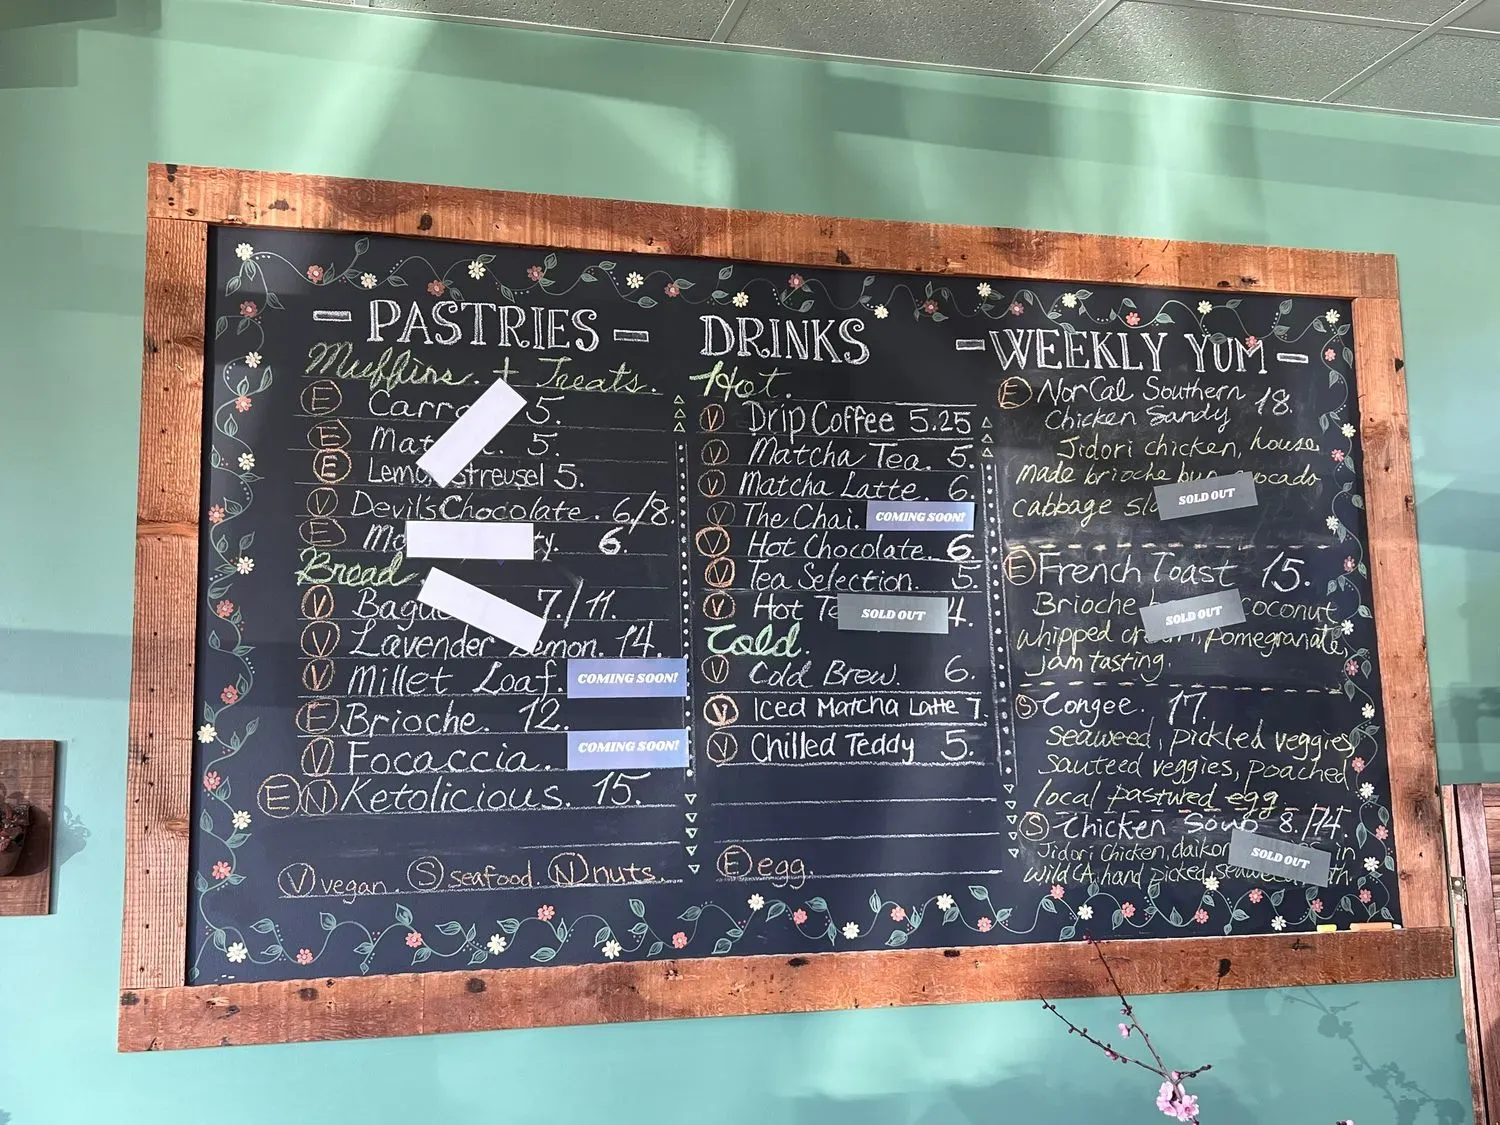 - PASTRIES -
Muffins + Treats.
E Carro 5.
E Mat 5.
E Lemo Streusel 5.
V Devil's Chocolate. 6/8.
E Mo ty. 6.
Bread
V Bague 7./11.
V Lavender Lemon. 14.
V Millet Loaf. COMING SOON!
E Brioche. 12.
V Focaccia. COMING SOON!
E N Ketolicious. 15.
V vegan. S seafood. N nuts.
DRINKS
Hot.
V Drip Coffee 5.25
V Matcha Tea. 5.
V Matcha Latte. 6.
V The Chai. COMING SOON!
V Hot Chocolate. 6.
V Tea Selection. 5.
V Hot Te SOLD OUT 4.
Cold.
V Cold Brew. 6.
V Iced Matcha Latte 7.
V Chilled Teddy 5.
E egg.
- WEEKLY YUM -
E NorCal Southern
Chicken Sandy 18.
Jidori chicken, house
made brioche bun avocado
cabbage sla SOLD OUT
E French Toast 15.
Brioche SOLD OUT coconut
whipped cream, pomegranate,
jam tasting.
S Congee. 17.
seaweed, pickled veggies,
sauteed veggies, poached
local pastured egg
S Chicken Soup 8./14.
Jidori Chicken, daikon SOLD OUT in
wild CA, hand picked, seawe th.